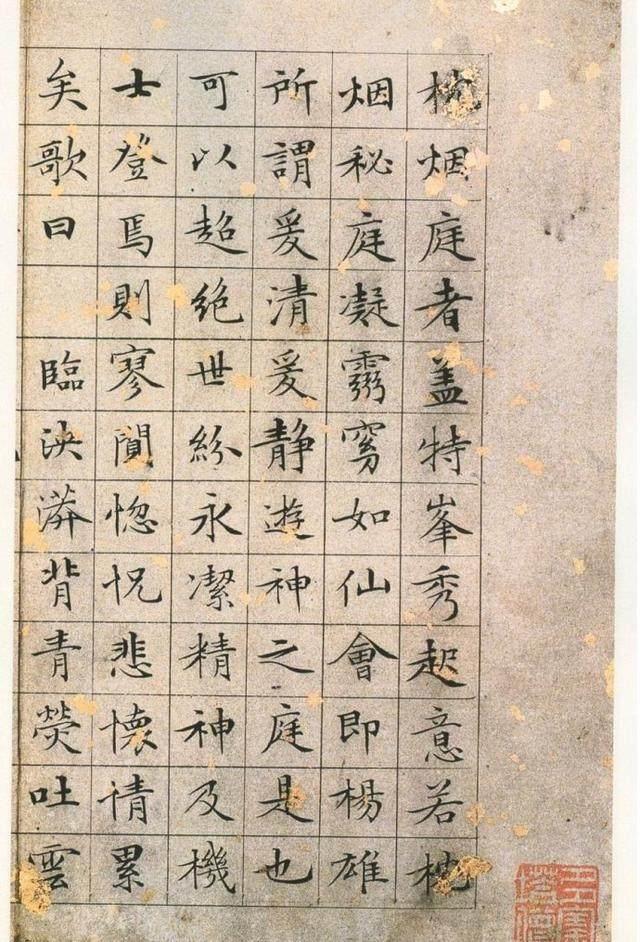 枕烟庭者盖特峯秀起意若枕
烟秘庭凝霛窈如仙會即楊雄
所謂爰清爰静遊神之庭是也
可以超絕世紛永潔精神及機
士登焉則寥閴惚怳悲懷情累
矣歌曰 臨泱漭背青熒吐雲